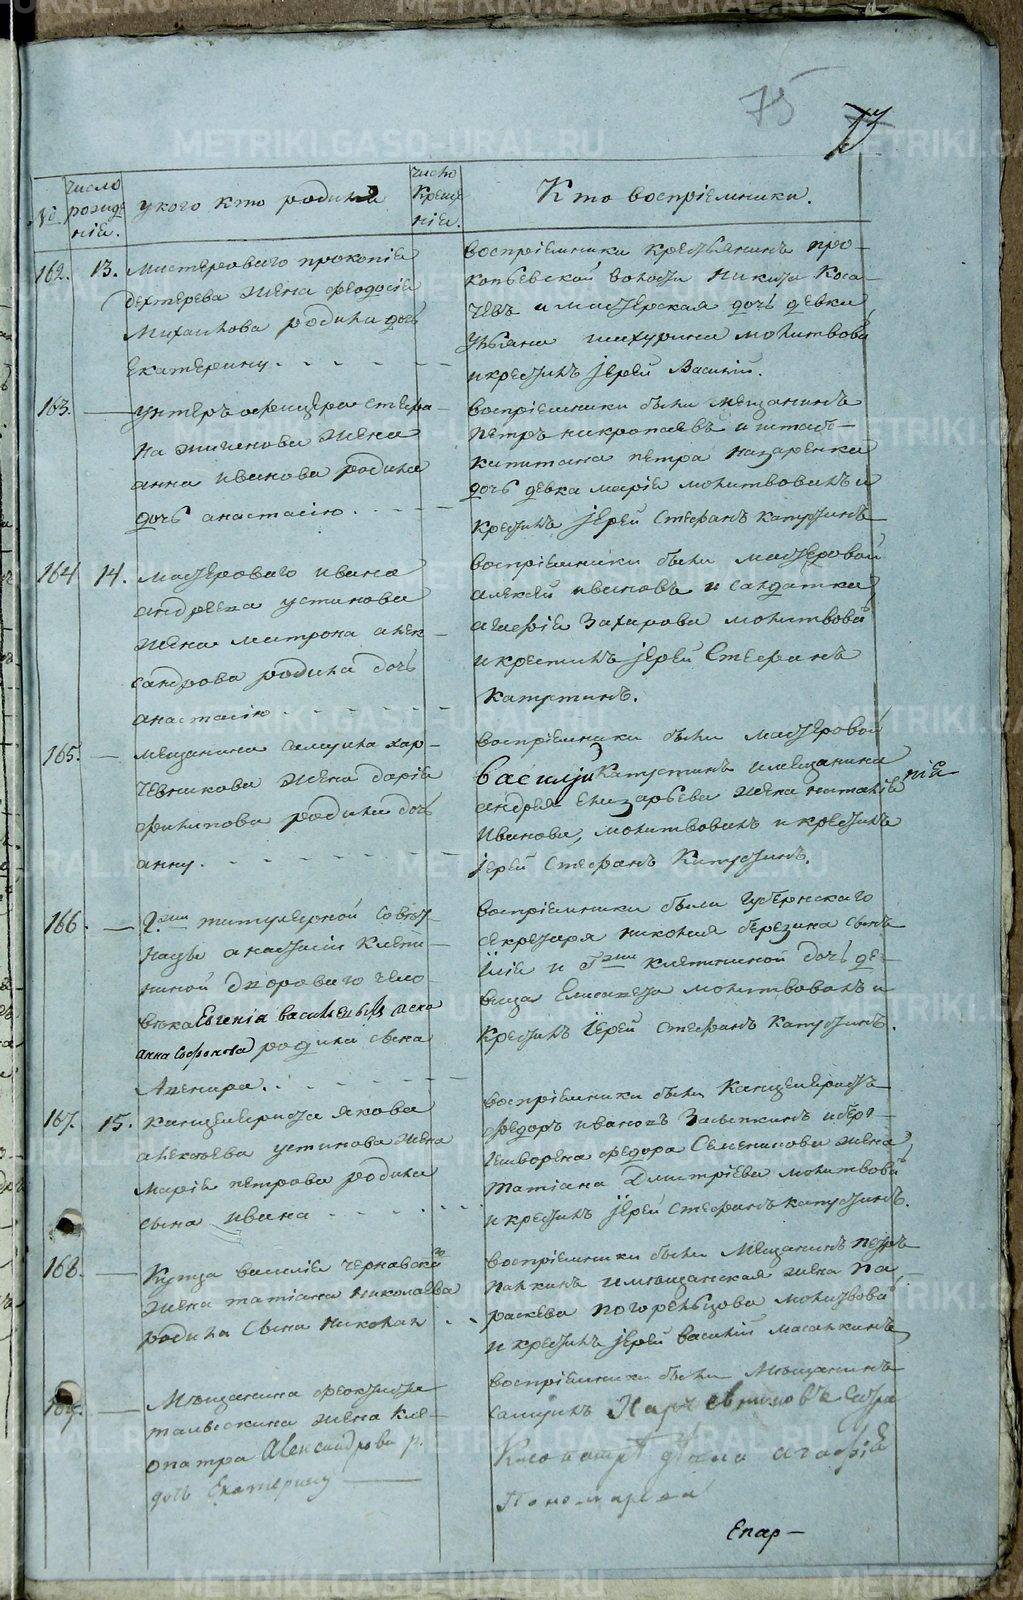 75
77
№
число рожде нія.
укого кто родился
число Креще нія.
Кто воспріемники.
162. 13. мастероваго прокопіе
Дехтерева жена феодосіе
Михаилова родила дочь
Екатерину.
воспріемники Крестьянинъ про-
копьевской волости Никита Коса-
чевъ и мастерская дочь девка
Ульяна молитвовалъ
и крестилъ іерей Василій.
163. унтеръ афицера стефа-
на жена
анна иванова родила
дочь анастасію.
воспріемники были мещанинъ
петръ и штабс-
капитана петра назаренка
дочь девка маріе молитвовалъ и
крестилъ іерей стефанъ капустинъ
164 14. мастероваго ивана
андреева устинова
жена матрона алек-
сандрова родила дочь
анастасію
воспріемники были мастеровой
алексей ивановъ и салдатка
агафіе Захарова молитвовалъ
и крестилъ іерей Стефанъ
капустинъ.
165. мещанина самуила хар-
чевникова жена даріе
филипова родила дочь
анну.
воспріемники были мастеровой
василій Капустинъ и мещанина
андрея Елизарьева жена наталіе
Иванова, молитвовалъ и крестилъ
іерей Стефанъ Капустинъ.
166. Г.жи титулярной совет-
ницы анастасіи клепи-
ниной Двороваго чело
века Евгенія васильевыхъ жена
анна Софонова родила сына
воспріемники были губернскаго
секретаря николая березина сынъ
Иліе и Г.жи клепининой дочь де-
вица Елисавета молитвовалъ и
крестилъ Іерей стефанъ капустинъ.
167. 15. канцеляриста якова
алексеева устинова жена
маріе петрова родила
сына ивана
воспріемники были Канцеляристъ
федоръ ивановъ и бер-
гешворена федора жена
татіана Дмитріева молитвовалъ
и крестилъ іерей стефанъ капустинъ.
168. Купца василіе чернавска
жена татіана николаева
родила Сына николая
воспріемники были Мещанинъ петръ
панкинъ и мещанская жена па
раскева погорельцова молитвовалъ
и крестилъ іерей василій
169. Мещанина феоктиста
жена кле-
опатра Александрова р.
дочь Екатерину
воспріемники были Мещанинъ
самуилъ Харчевниковъ
агафіе
Пономарева
Епар-
METRIKI.GASO-URAL.RU